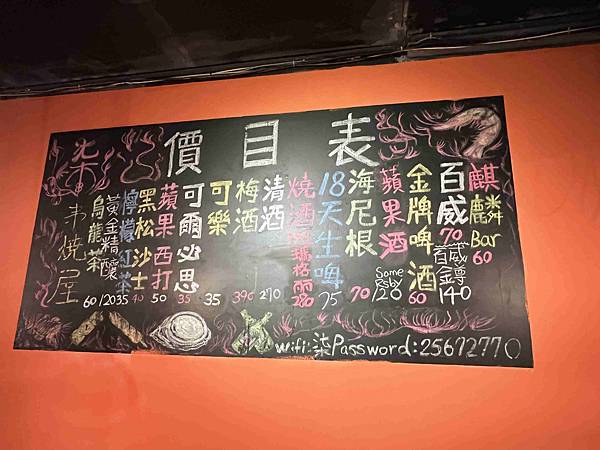 價目表
麒麟Bar 60
百威 70
百威金鐏 140
金牌啤酒 60
蘋果酒 Somersby 120
海尼根 70
18天生啤 75
燒酒
清酒 270
梅酒 390
可樂 35
可爾必思 35
蘋果西打 50
黑松沙士 40
檸檬紅茶 35
黃金精釀 120
烏龍茶 60
柒 串燒屋
wifi:柒 Password:25672770